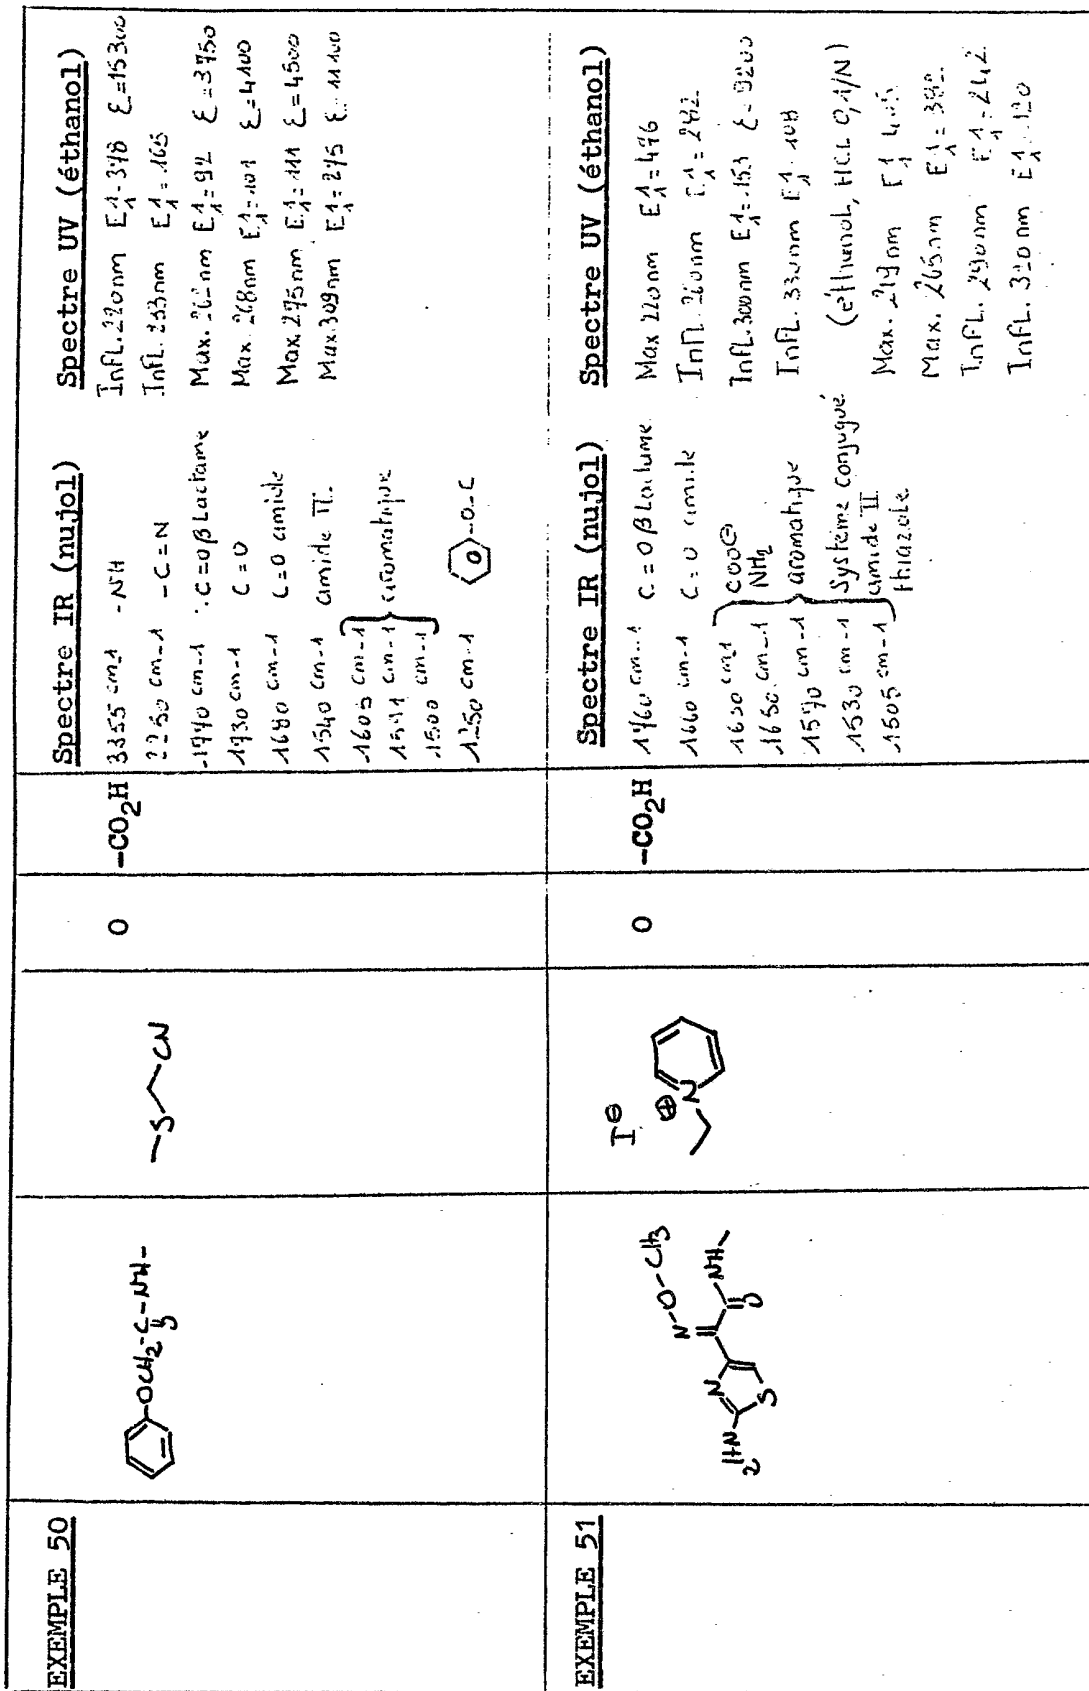 EXEMPLE 50
-OCH2-C-NH-
O
-S
CN
O
-CO2H
Spectre IR (nujol)
3355 cm-1 -NH
2250 cm-1 -C=N
1770 cm-1 C=O β Lactame
1730 cm-1 C=O
1680 cm-1 C=O amide
1540 cm-1 amide II
1605 cm-1
1591 cm-1 aromatique
1500 cm-1
1250 cm-1 O-C
Spectre UV (éthanol)
Infl. 220nm E1/1=378 ε=15300
Infl. 253nm E1/1=165
Max. 262nm E1/1=92 ε=3750
Max. 268nm E1/1=101 ε=4100
Max 275nm E1/1=111 ε=4500
Max 309nm E1/1=275 ε=11100
EXEMPLE 51
H2N
N
S
N-O-CH3
NH-
O
I⊖
⊕
N
O
-CO2H
Spectre IR (nujol)
1760 cm-1 C=O β Lactame
1660 cm-1 C=O amide
1630 cm-1 COO⊖
1650 cm-1 NH2
1570 cm-1 aromatique
1530 cm-1 Système conjugué
1505 cm-1 amide II
thiazole
Spectre UV (éthanol)
Max 220nm E1/1=476
Infl. 260nm E1/1=242
Infl. 300nm E1/1=153 ε=9200
Infl. 330nm E1/1=108
(éthanol, HCl 0,1/N)
Max. 219nm E1/1
Max. 265nm E1/1
Infl. 290nm E1/1=242
Infl. 320nm E1/1=120